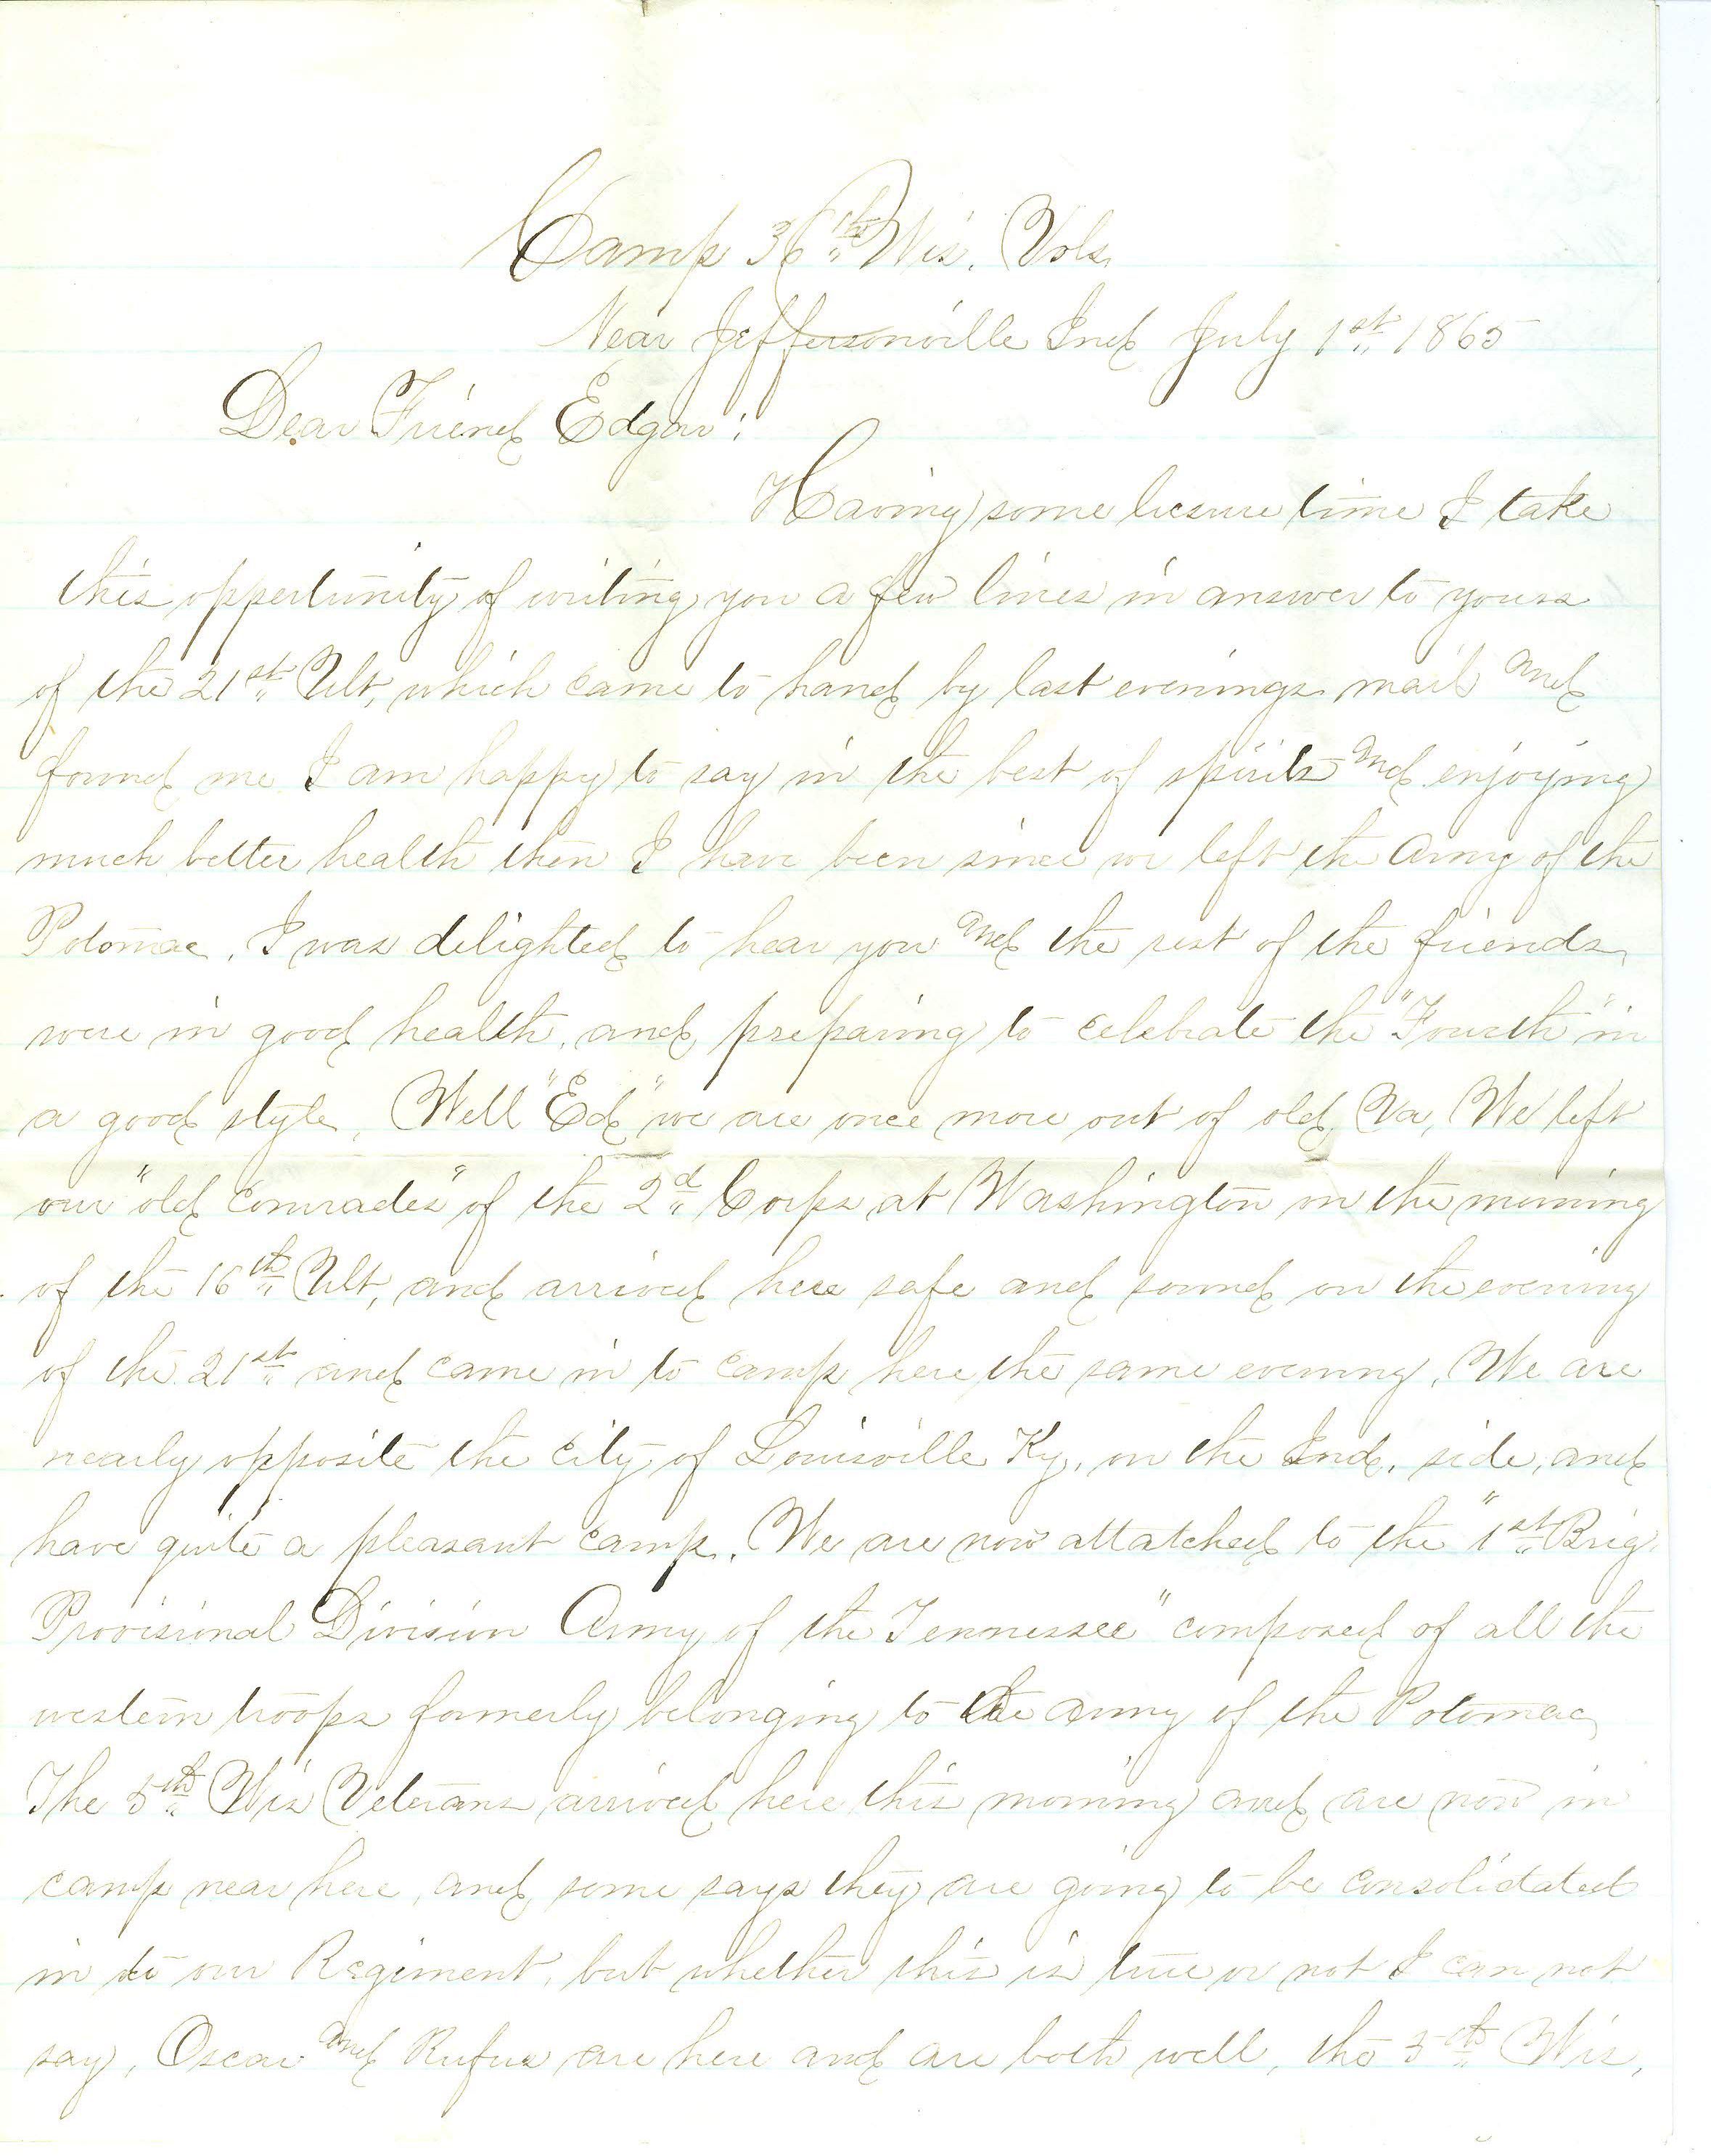 Camp 36th Wis. Vols.
Near Jeffersonville Ind July 1st 1865
Dear Friend Edgar:
Having some liesure time I take
this oppertunity of writing you a few lines in answer to yours
of the 21st Ult, which came to hand by last evenings mail and
found me I am happy to say in the best of spirits and enjoying
much better health then I have been since we left the Army of the
Potomac. I was delighted to hear you and the rest of the friends
were in good health, and preparing to celebrate the "Fourth" in
a good style. Well "Ed" we are once more out of old Va, We left
our "old comrades" of the 2d Corps at Washington on the morning
of the 16th Ult, and arrived here safe and sound on the evening
of the 21st and came in to camp here the same evening. We are
nearly opposite the city of Louisville Ky. on the Ind. side, and
have quite a pleasant camp. We are now attatched to the "1st Brig.
Provisional Division Army of the Tennessee" composed of all the
western troops formerly belonging to the army of the Potomac,
The 5th Wis Veterans arrived here this morning and are now in
camp near here, and some says they are going to be consolidated
in to our Regiment, but whether this is true or not I can not
say, Oscar and Rufus are here and are both well, the 5th Wis,